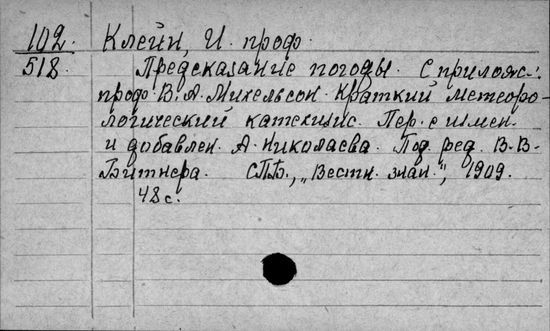 102. Клейн, И. проф.
518. Предсказание погоды. С прилож.:
проф. В. А. Михельсон. Краткий метеоро-
логический катехизис. Пер. с измен.
и добавлен. А. Николаева. Под ред. В. В.
Битнера. СПБ., „Вестн. знан.", 1909.
48 с.